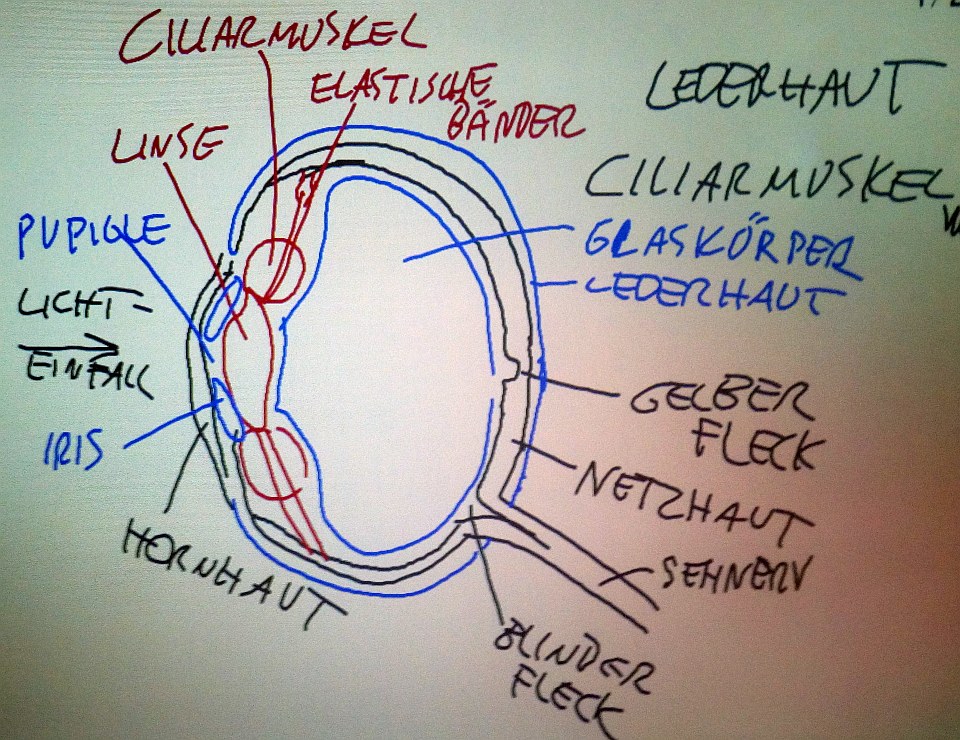 CILIARMUSKEL
ELASTISCHE
BÄNDER
LINSE
PUPIGLE
LICHT-
EINFALL
IRIS
HORNHAUT
LEDERHAUT
CILIARMUSKEL
GLASKÖRPER
LEDERHAUT
GELBER
FLECK
NETZHAUT
SEHNERV
BLINDER
FLECK